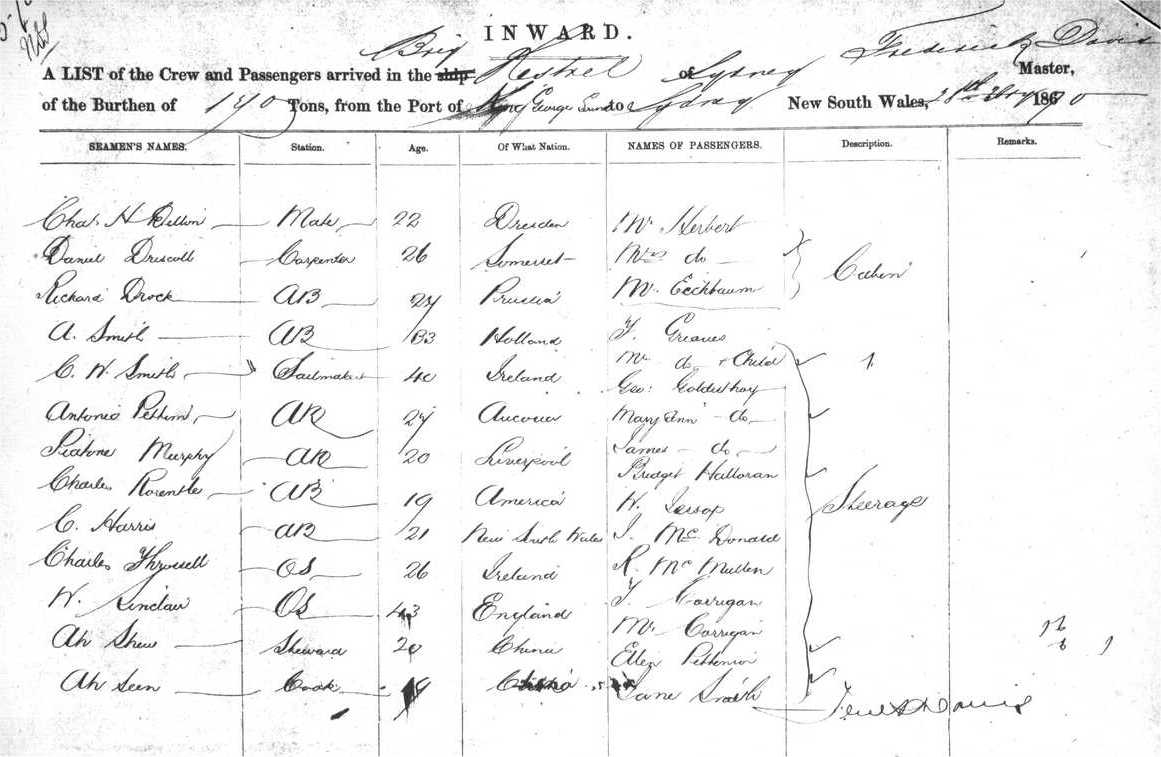 INWARD.
Brig Frederick Davis
A LIST of the Crew and Passengers arrived in the ship Kestrel of Sydney Master,
of the Burthen of 190 Tons, from the Port of King George Sound to Sydney New South Wales, 28th 1870
SEAMEN'S NAMES. Station. Age. Of What Nation. NAMES OF PASSENGERS. Description. Remarks.
Chas. H Mate 22 Dresden Mr Herbert
Daniel Driscoll Carpenter 26 Somerset Mrs do Cabin
Richard Drock AB 24 Prussia Mr Eichbaum
A. Smith AB 33 Holland T. Greaves
C. W. Smith Sailmaker 40 Ireland Mrs do + Child
Geo: Goldsthorp
Antonio AB 27 Mary Ann do
Murphy AB 20 Liverpool James do
Bridget Halloran
Charles AB 19 America Jessop Steerage
C. Harris AB 21 New South Wales J. McDonald
Charles OS 26 Ireland R. McMullen
W. Sinclair OS 43 England T. Corrigan
Mrs Corrigan
Ah Shew Steward 20 China Ellen
Ah Seen Cook 19 China Jane Smith
Davis